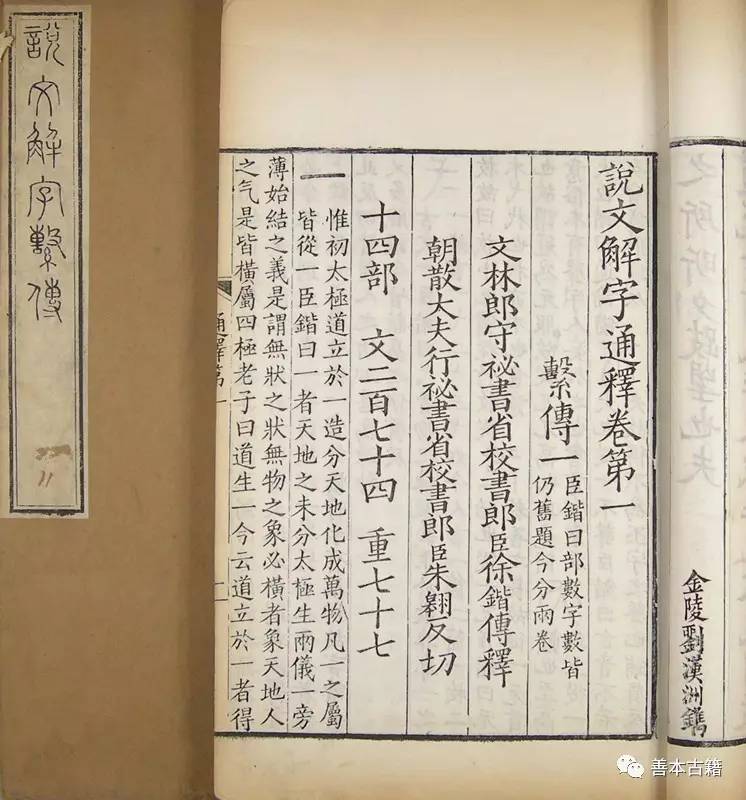 說文解字繫傳
11
金陵劉漢洲鐫
說文解字通釋卷第一
繫傳一
臣鍇曰部數字數皆
仍舊題今分兩卷
文林郎守祕書省校書郎臣徐鍇傳釋
朝散大夫行祕書省校書郎臣朱翱反切
十四部 文二百七十四 重七十七
一
惟初太極道立於一造分天地化成萬物凡一之屬
皆從一臣鍇曰一者天地之未分太極生兩儀一旁
薄始結之義是謂無狀之狀無物之象必橫者象天地人
之气是皆橫屬四極老子曰道生一今云道立於一者得
通釋第一
善本古籍